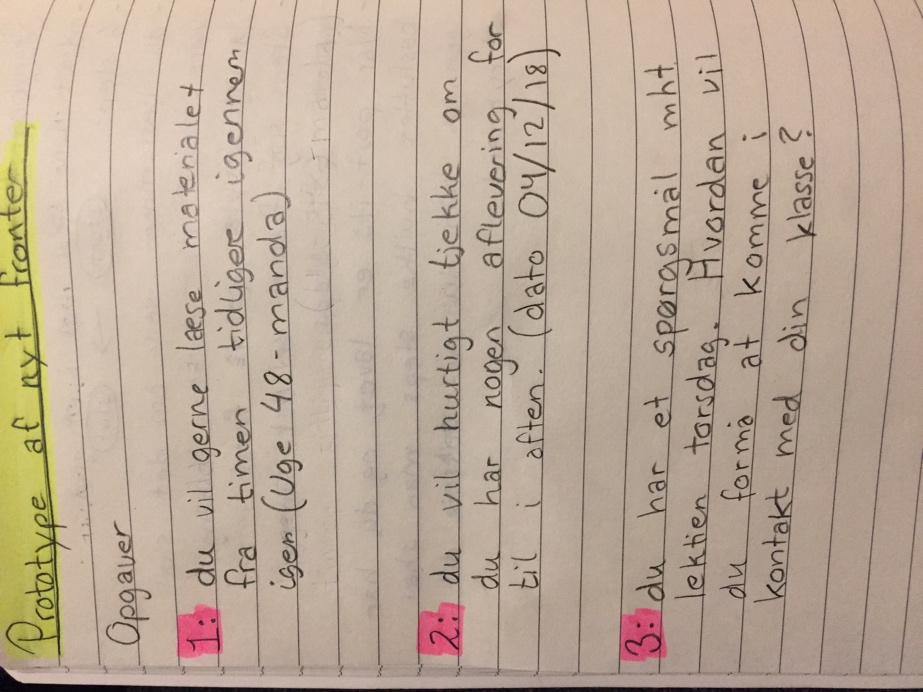 Prototype af nyt fronter
Opgaver
1: du vil gerne læse materialet
fra timen tidligere igennem
igen (Uge 48 - manda)
2: du vil hurtigt tjekke om
du har nogen aflevering for
til i aften. (dato 04/12/18)
3: du har et spørgsmål mht
lektien torsdag. Hvordan vil
du formå at komme i
kontakt med din klasse?